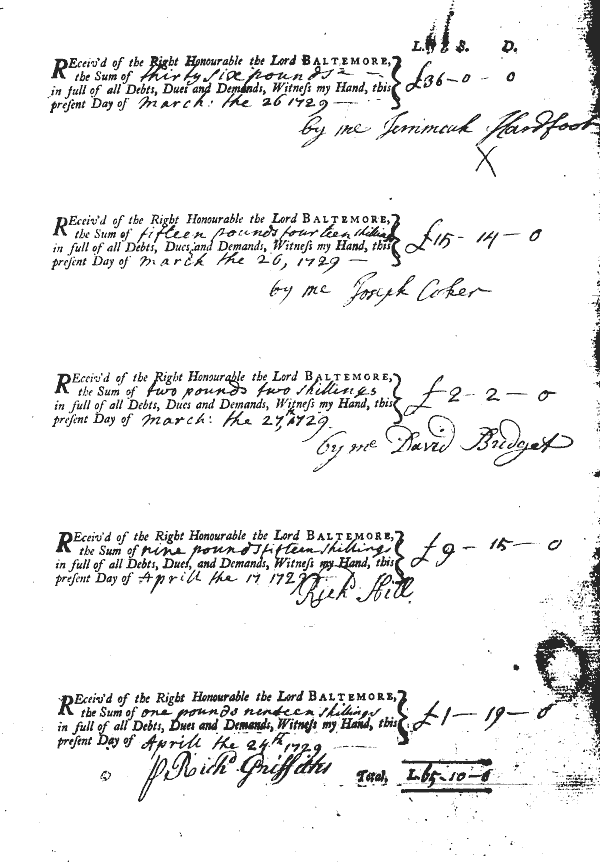 L. S. D.
REceiv'd of the Right Honourable the Lord BALTEMORE,
the Sum of thirty six pounds £36-0-0
in full of all Debts, Dues and Demands, Witneſs my Hand, this
preſent Day of march: the 26 1729
by me Jerimmiah Hardfoot
X
REceiv'd of the Right Honourable the Lord BALTEMORE,
the Sum of fifteen pounds fourteen shillings £15-14-0
in full of all Debts, Dues, and Demands, Witneſs my Hand, this
preſent Day of march the 26, 1729
by me Joseph Coker
REceiv'd of the Right Honourable the Lord BALTEMORE,
the Sum of two pounds two shillings £2-2-0
in full of all Debts, Dues and Demands, Witneſs my Hand, this
preſent Day of march: the 27th 1729
by me David Bridget
REceiv'd of the Right Honourable the Lord BALTEMORE,
the Sum of nine pounds fifteen shillings £9-15-0
in full of all Debts, Dues, and Demands, Witneſs my Hand, this
preſent Day of Aprill the 17 1729
Richd Hill
REceiv'd of the Right Honourable the Lord BALTEMORE,
the Sum of one pounds nineteen shillings £1-19-0
in full of all Debts, Dues and Demands, Witneſs my Hand, this
preſent Day of Aprill the 24th 1729
Richd Griffiths
Total, L.65-10-0